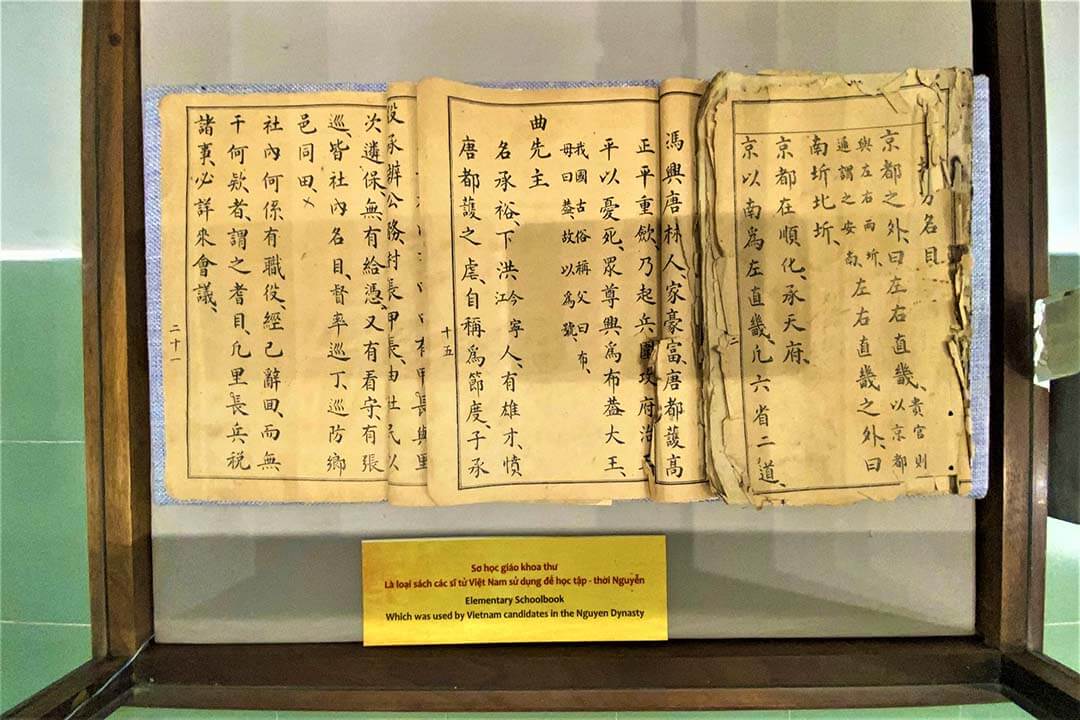 方名目
京都之外、曰左右直畿、貴官則以京都
與左右兩圻、通謂之安南、左右直畿之外、曰
南圻北圻、
京都在順化、承天府、
京以南爲左直畿、凡六省二道、
二
馮興唐林人、家豪富、唐都護高
正平重歛、乃起兵圍攻府治、正
平以憂死、眾尊興爲布葢大王、
我國古俗稱父曰布、
母曰葢、故以爲號、
曲先主
名承裕、下洪今寧江人、有雄才、憤
唐都護之虐、自稱爲節度、子承
十五
有甲長與里
役承辦公務、村長甲長、由社民以
次遴保、無有給憑、又有看守、有張
巡、皆社內名目、督率巡丁、巡防鄉
邑同田、
社內何係有職役、經已辭回、而無
干何欵者、謂之耆目、凡里長兵稅
諸事、必詳來會議、
二十一
Sơ học giáo khoa thư
Là loại sách các sĩ tử Việt Nam sử dụng để học tập - thời Nguyễn
Elementary Schoolbook
Which was used by Vietnam candidates in the Nguyen Dynasty